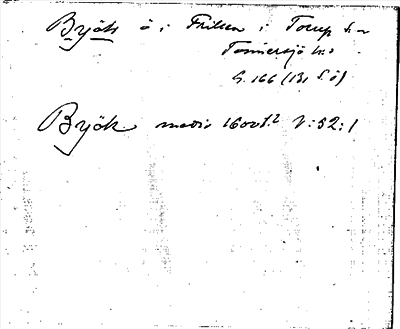 Byök ö i Fhilen i Torup sn
Tönnersjö hd
G. 166 (131 s.ö)
Byök medio 1600 t. 2 V: 52: 1